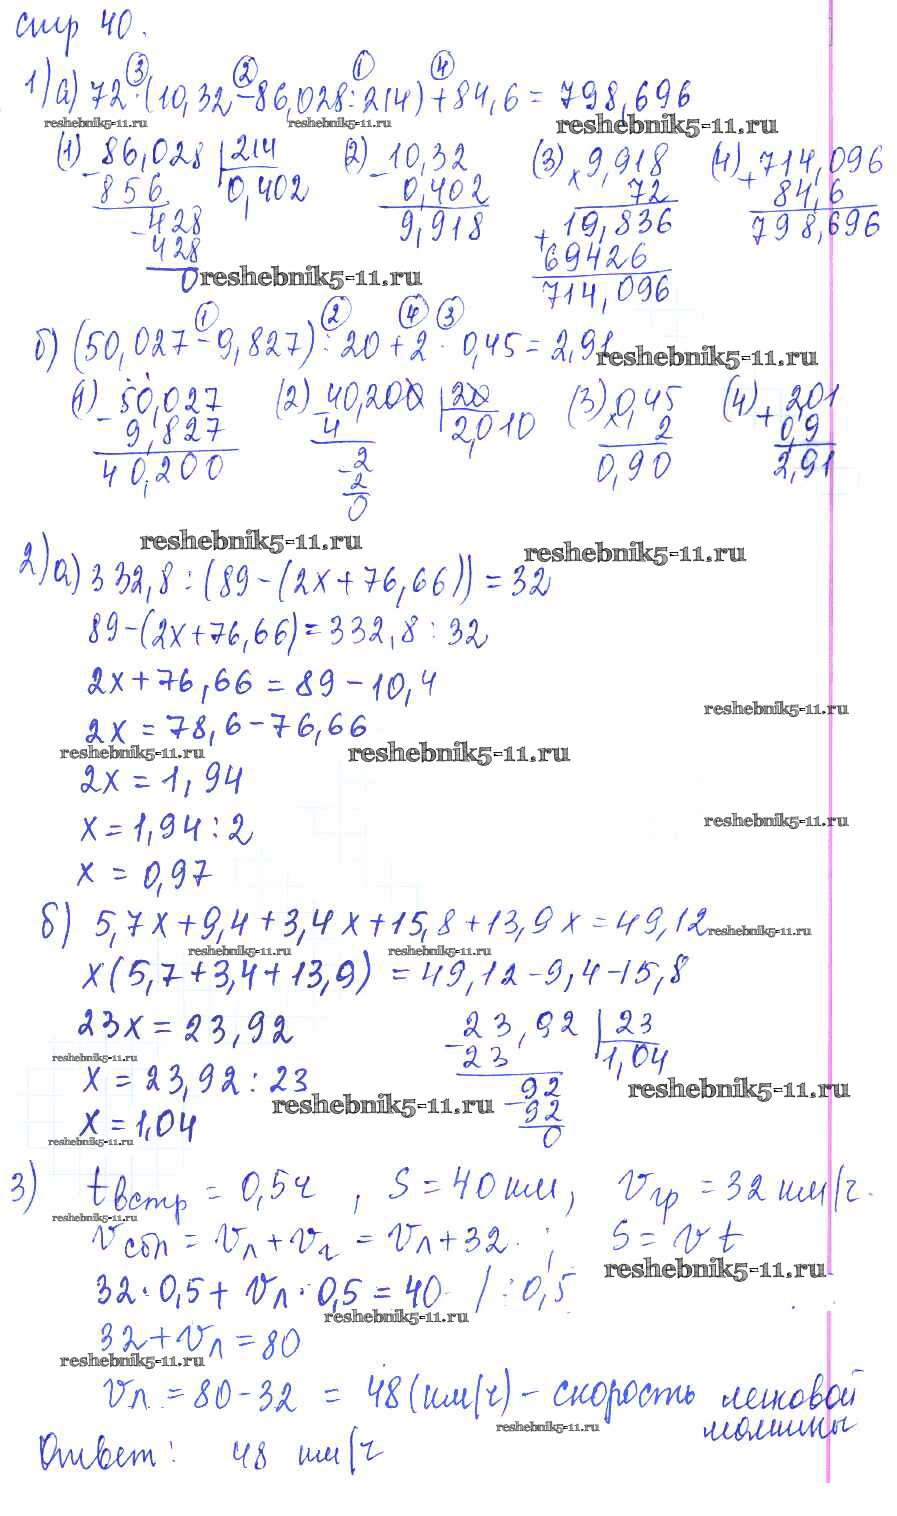 стр 40.
③ ② ① ④
1) а) 72·(10,32-86,028:214)+84,6=798,696
reshebnik5-11.ru reshebnik5-11.ru reshebnik5-11.ru
(1) -86,028 | 214 (2) -10,32 (3) ×9,918 (4) +714,096
856 0,402 0,402 72 84,6
-428 9,918 +19,836 798,696
428 69426
0 714,096
reshebnik5-11.ru
① ② ④ ③
б) (50,027-9,827):20+2·0,45=2,91
reshebnik5-11.ru
(1) -50,027 (2) -40,200 | 20 (3) ×0,45 (4) +2,01
9,827 4 2,010 2 0,9
40,200 -2 0,90 2,91
2
0
reshebnik5-11.ru reshebnik5-11.ru
2) а) 332,8:(89-(2x+76,66))=32
89-(2x+76,66)=332,8:32
2x+76,66=89-10,4
reshebnik5-11.ru
2x=78,6-76,66
reshebnik5-11.ru reshebnik5-11.ru
2x=1,94
x=1,94:2
reshebnik5-11.ru
x=0,97
б) 5,7x+9,4+3,4x+15,8+13,9x=49,12
reshebnik5-11.ru
reshebnik5-11.ru reshebnik5-11.ru
x(5,7+3,4+13,9)=49,12-9,4-15,8
23x=23,92 -23,92 | 23
reshebnik5-11.ru 23 1,04
x=23,92:23 -92
reshebnik5-11.ru reshebnik5-11.ru
x=1,04 92
reshebnik5-11.ru 0
3) tвстр=0,5ч, S=40км, vгр=32км/ч.
reshebnik5-11.ru
vсбл=vл+vг=vл+32; S=vt
reshebnik5-11.ru
32·0,5+vл·0,5=40 /:0,5
reshebnik5-11.ru
32+vл=80
reshebnik5-11.ru
vл=80-32=48(км/ч)-скорость легковой
reshebnik5-11.ru машины
Ответ: 48 км/ч